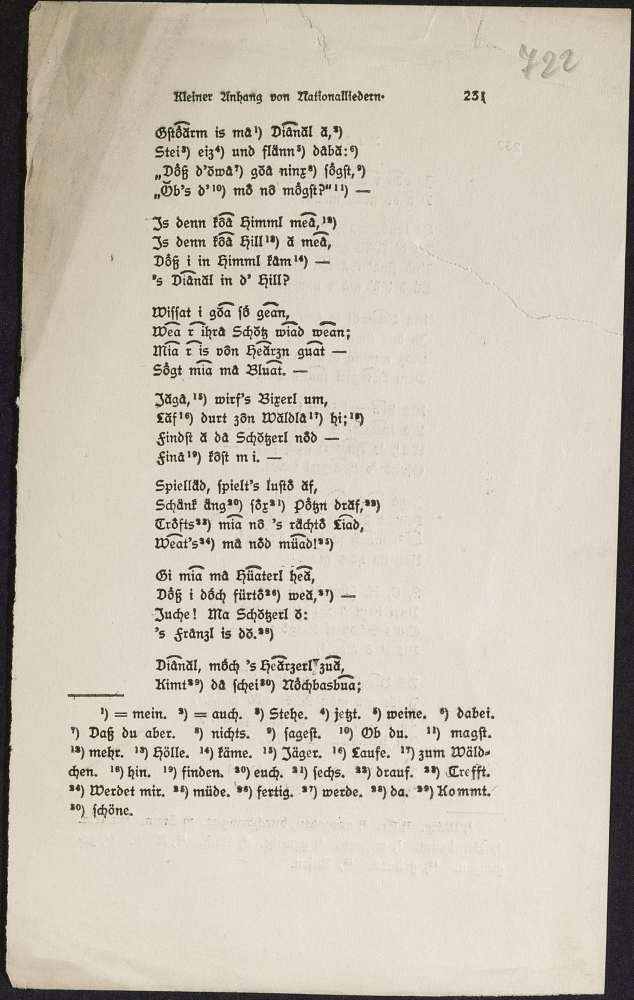 722
Kleiner Anhang von Nationalliedern. 231
Gstôarm is mā¹) Diandl ā,²)
Stei³) eiz⁴) und flänn⁵) dābā:⁶)
„Dôß d'ôwā⁷) gôā ninx⁸) sôgst,⁹)
„Ôb's d'¹⁰) mô nô môgst?"¹¹) —
Is denn kôā Himml meā,¹²)
Is denn kôā Hill¹³) ā meā,
Dôß i in Himml kām¹⁴) —
's Diandl in d' Hill?
Wissat i gôa sô gean,
Wea r ihrā Schôtz wiad wean;
Mia r is vôn Heārzn guat —
Sôgt mia mā Bluat. —
Jāgā,¹⁵) wirf's Bixerl um,
Lāf¹⁶) durt zôn Wāldlā¹⁷) hi;¹⁸)
Findst ā dā Schôtzerl nôd —
Finā¹⁹) kôst mi. —
Spiellād, spielt's lustô āf,
Schānk āng²⁰) sôx²¹) Pôtzn drāf,²²)
Trôfts²³) mia nô 's rāchtô Liad,
Weat's²⁴) mā nôd müad!²⁵)
Gi mia mā Hüaterl heā,
Dôß i dôch fürtô²⁶) weā,²⁷) —
Juche! Ma Schôtzerl ô:
's Frānzl is dô.²⁸)
Diandl, môch 's Heārzerl zuā,
Kimt²⁹) dā schei³⁰) Nôchbasbua;
¹) = mein. ²) = auch. ³) Stehe. ⁴) jetzt. ⁵) weine. ⁶) dabei.
⁷) Daß du aber. ⁸) nichts. ⁹) sagest. ¹⁰) Ob du. ¹¹) magst.
¹²) mehr. ¹³) Hölle. ¹⁴) käme. ¹⁵) Jäger. ¹⁶) Laufe. ¹⁷) zum Wäld-
chen. ¹⁸) hin. ¹⁹) finden. ²⁰) euch. ²¹) sechs. ²²) drauf. ²³) Trefft.
²⁴) Werdet mir. ²⁵) müde. ²⁶) fertig. ²⁷) werde. ²⁸) da. ²⁹) Kommt.
³⁰) schöne.